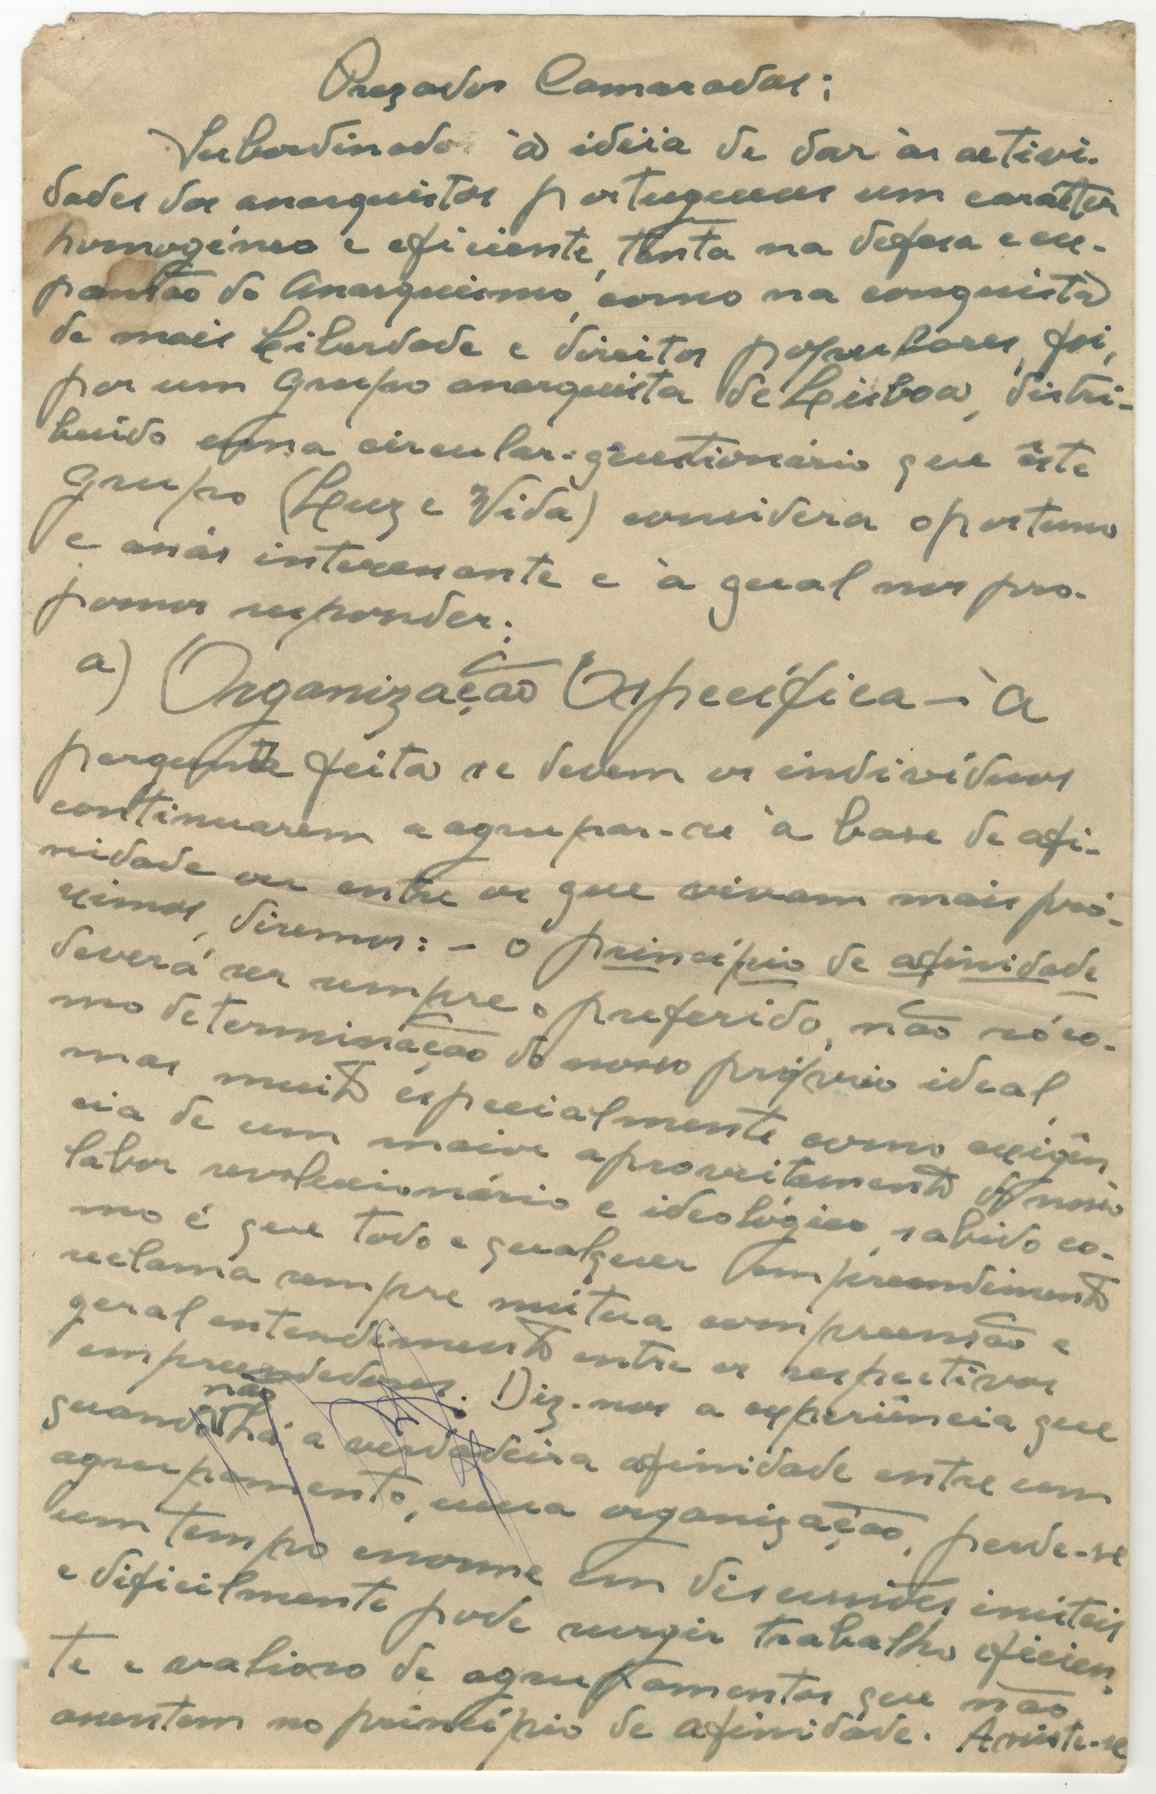 Prezados Camaradas:
Subordinado à idéia de dar às activi-
dades dos anarquistas portugueses um carácter
homogéneo e eficiente, tanto na defesa e ex-
pansão do Anarquismo, como na conquista
de mais Liberdade e direitos populares, foi,
por um grupo anarquista de Lisboa, distri-
buído uma circular-questionário que êste
grupo (Luz e Vida) considera oportuno
e assás interessante e à qual nos pro-
pomos responder:
a) Organização Específica - À
pergunta feita se devem os indivíduos
continuarem a agrupar-se à base de afi-
nidade ou entre os que vivam mais pró-
ximos, diremos: - O princípio de afinidade
deverá ser sempre o preferido, não só co-
mo determinação do nosso próprio ideal,
mas muito especialmente como exigên
cia de um maior aproveitamento do nosso
labor revolucionário e ideológico, sabido co-
mo é que todo e qualquer empreendimento
reclama sempre mútua compreensão e
geral entendimento entre os respectivos
empreendedores. Diz-nos a experiência que
quando não há a verdadeira afinidade entre um
agrupamento, uma organização, perde-se
um tempo enorme em discussões inúteis
e dificilmente pode surgir trabalho eficien-
te e valioso de agrupamentos que não
assentem no princípio de afinidade. Assiste-se